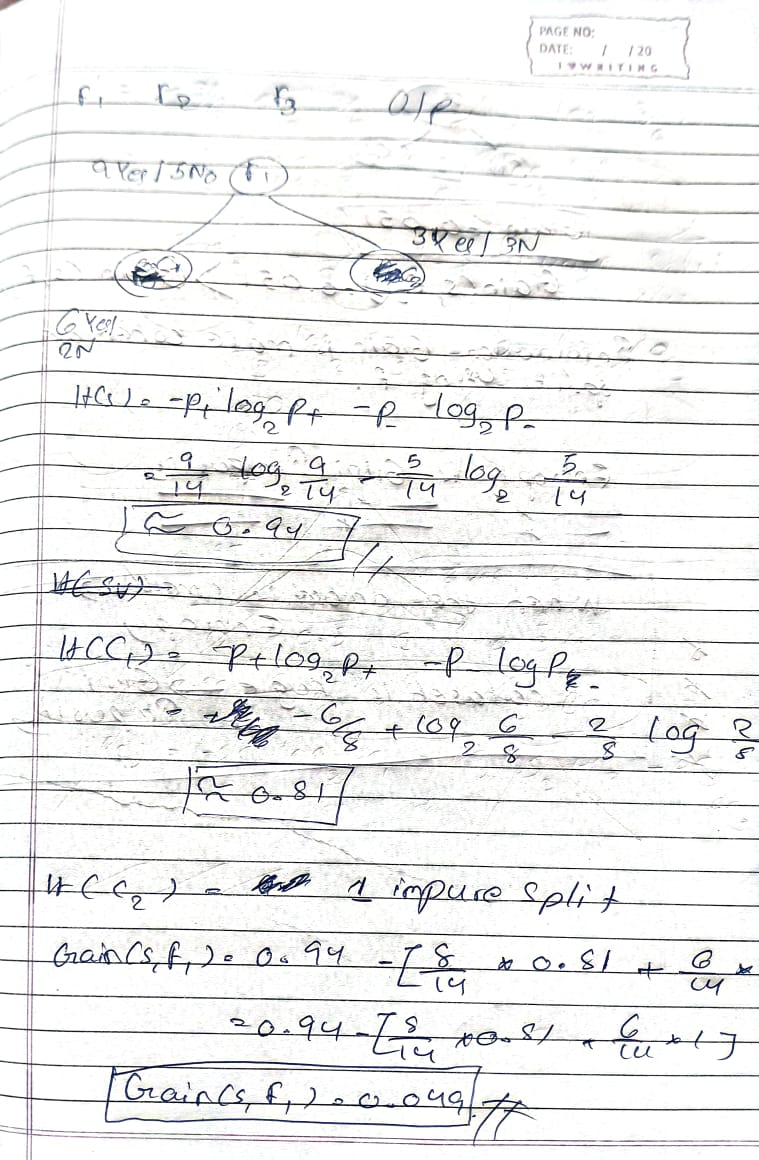 PAGE NO:
DATE: / /20
I ♥ WRITING
f₁ f₂ f₃ O/P
9 Yes / 5No f₁
3Yes / 3N
C₁ C₂
6 Yes/
2N
H(S) = -P₊ log₂ P₊ - P₋ log₂ P₋
= 9/14 log₂ 9/14 - 5/14 log₂ 5/14
≈ 0.94 //
H(Sv)
H(C₁) = -P₊ log₂ P₊ - P log P₋
= -6/8 + log₂ 6/8 - 2/8 log 2/8
≈ 0.81
H(C₂) = 1 impure split
Gain(S, f₁) = 0.94 - [8/14 * 0.81 + 6/14 *
= 0.94 - [8/14 * 0.81 + 6/14 * 1]
Gain(S, f₁) = 0.049 //